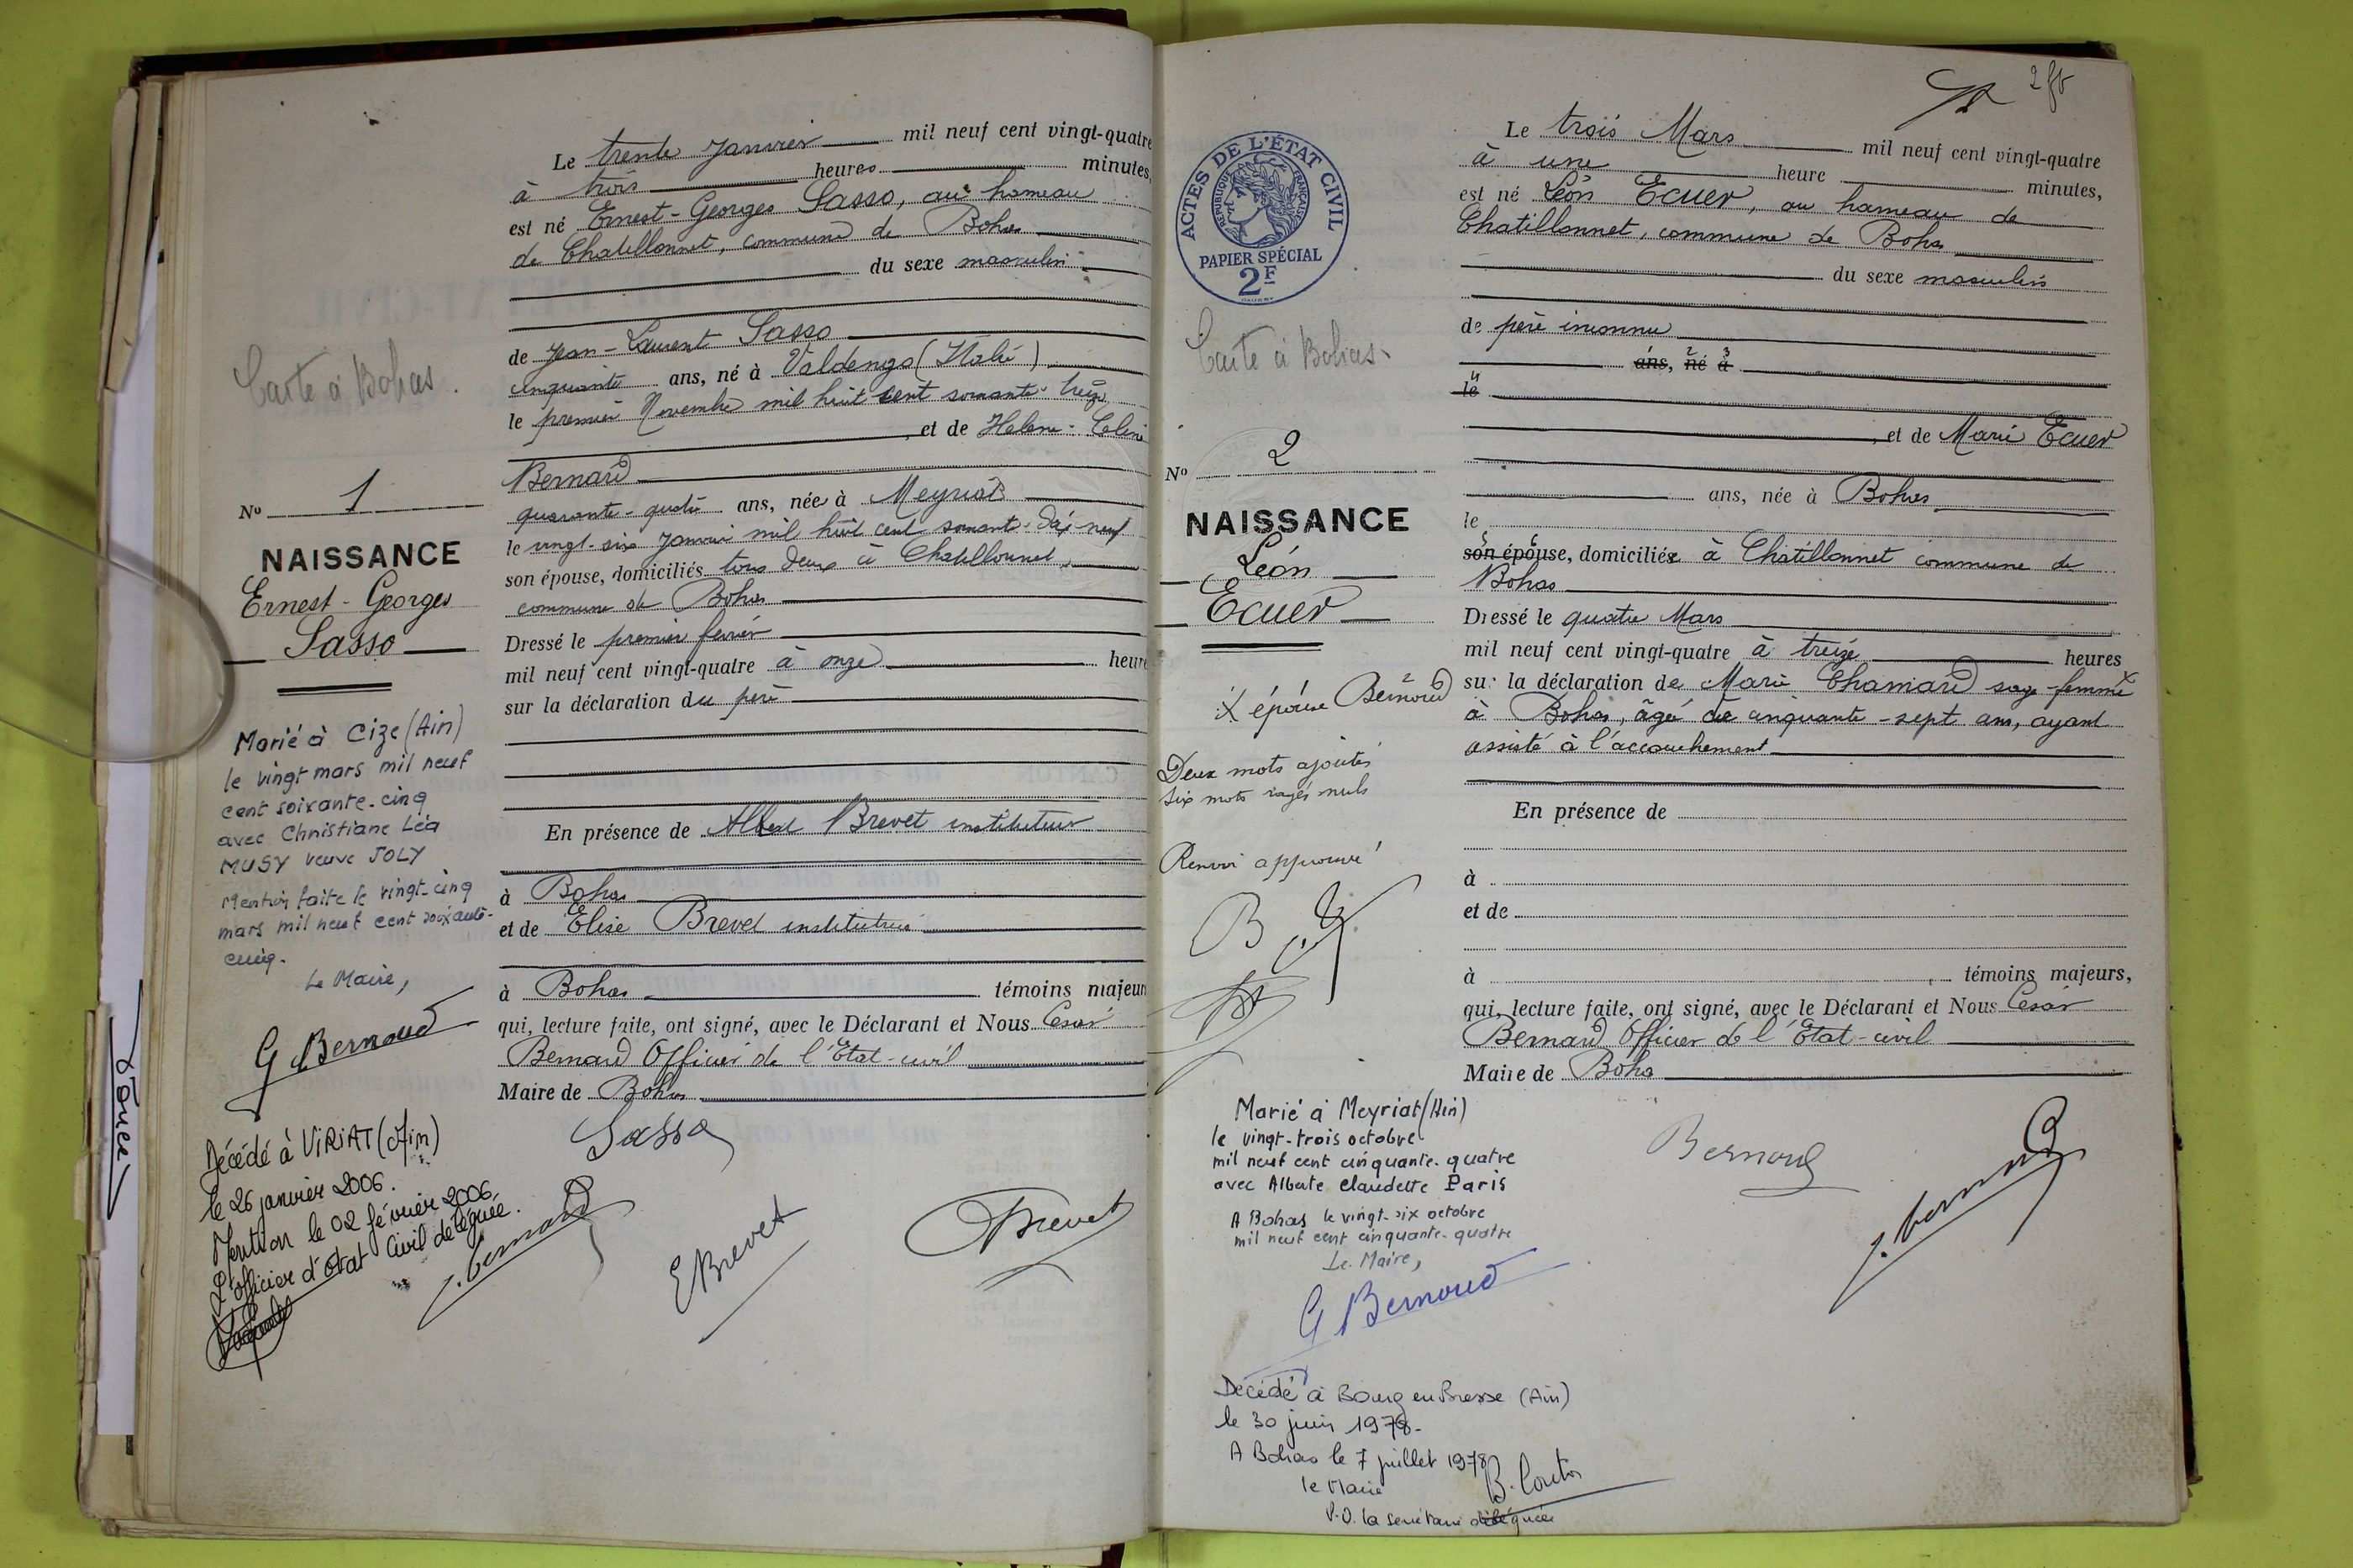 Le trente Janvier mil neuf cent vingt-quatre
à trois heures minutes,
est né Ernest-Georges Sasso, au hameau
de Chatillonnet, commune de Bohas
du sexe masculin
de Jean-Laurent Sasso
cinquante ans, né à Valdengo (Italie)
le premier Novembre mil huit cent soixante-treize
, et de Helene-Celine
Bernard
quarante-quatre ans, née à Meyriat
le vingt-six Janvier mil huit cent soixante-dix-neuf
son épouse, domiciliés tous deux à Chatillonnet,
commune de Bohas
Dressé le premier février
mil neuf cent vingt-quatre à onze heure
sur la déclaration du père
En présence de Albert Brevet instituteur
à Bohas
et de Elise Brevet institutrice
à Bohas témoins majeur
qui, lecture faite, ont signé, avec le Déclarant et Nous César
Bernard Officier de l'État-civil
Maire de Bohas
Sasso
J. Bernard
E Brevet
Brevet
Carte à Bohas.
No 1
NAISSANCE
Ernest-Georges
Sasso
Marié à Cize (Ain)
le vingt mars mil neuf
cent soixante-cinq
avec Christiane Léa
MUSY veuve JOLY
Mention faite le vingt-cinq
mars mil neuf cent soixante-
cinq.
Le Maire,
G Bernoud
Décédé à VIRIAT (Ain)
le 26 janvier 2006.
Mention le 02 février 2006,
L'officier d'état civil déléguée.
ACTES DE L'ÉTAT CIVIL
RÉPUBLIQUE FRANÇAISE
PAPIER SPÉCIAL
2F
Carte à Bohas.
No 2
NAISSANCE
Léon
Ecuer
X épouse Bernoud
Deux mots ajoutés
six mots rayés nuls
Renvoi approuvé
Le trois Mars mil neuf cent vingt-quatre
à une heure minutes,
est né Léon Ecuer, au hameau de
Chatillonnet, commune de Bohas
du sexe masculin
de père inconnu
ans, né à
le
, et de Marie Ecuer
ans, née à Bohas
le
son épouse, domiciliée à Châtillonnet commune de
Bohas
Dressé le quatre Mars
mil neuf cent vingt-quatre à treize heures
sur la déclaration de Marie Chanard sage-femme X
à Bohas, âgée de cinquante-sept ans, ayant
assisté à l'accouchement
En présence de
à
et de
à , témoins majeurs,
qui, lecture faite, ont signé, avec le Déclarant et Nous César
Bernard Officier de l'État-civil
Maire de Bohas
Bernoud
J. Bernard
Marié à Meyriat (Ain)
le vingt-trois octobre
mil neuf cent cinquante-quatre
avec Alberte Claudette Paris
A Bohas le vingt-six octobre
mil neuf cent cinquante-quatre
Le Maire,
G Bernoud
Décédé à Bourg en Bresse (Ain)
le 30 juin 1978-
A Bohas le 7 juillet 1978
le Maire
P.O. la secrétaire déléguée